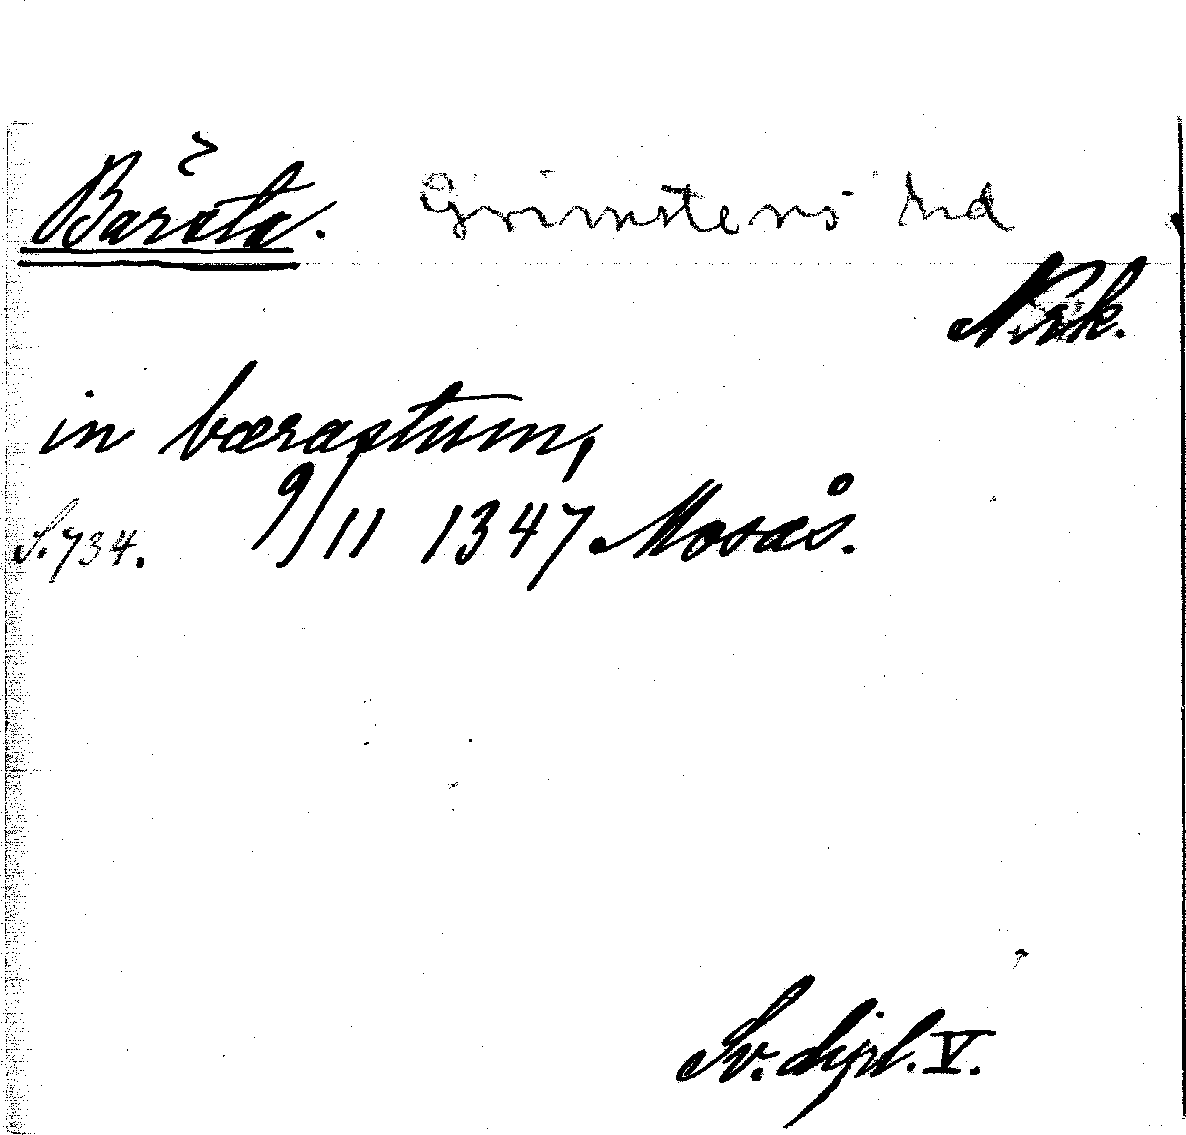 Barsta. Grimstens hd
Nrk.
in bærastum,
S. 734. 9/11 1347 Mosås.
Sv. dipl. V.